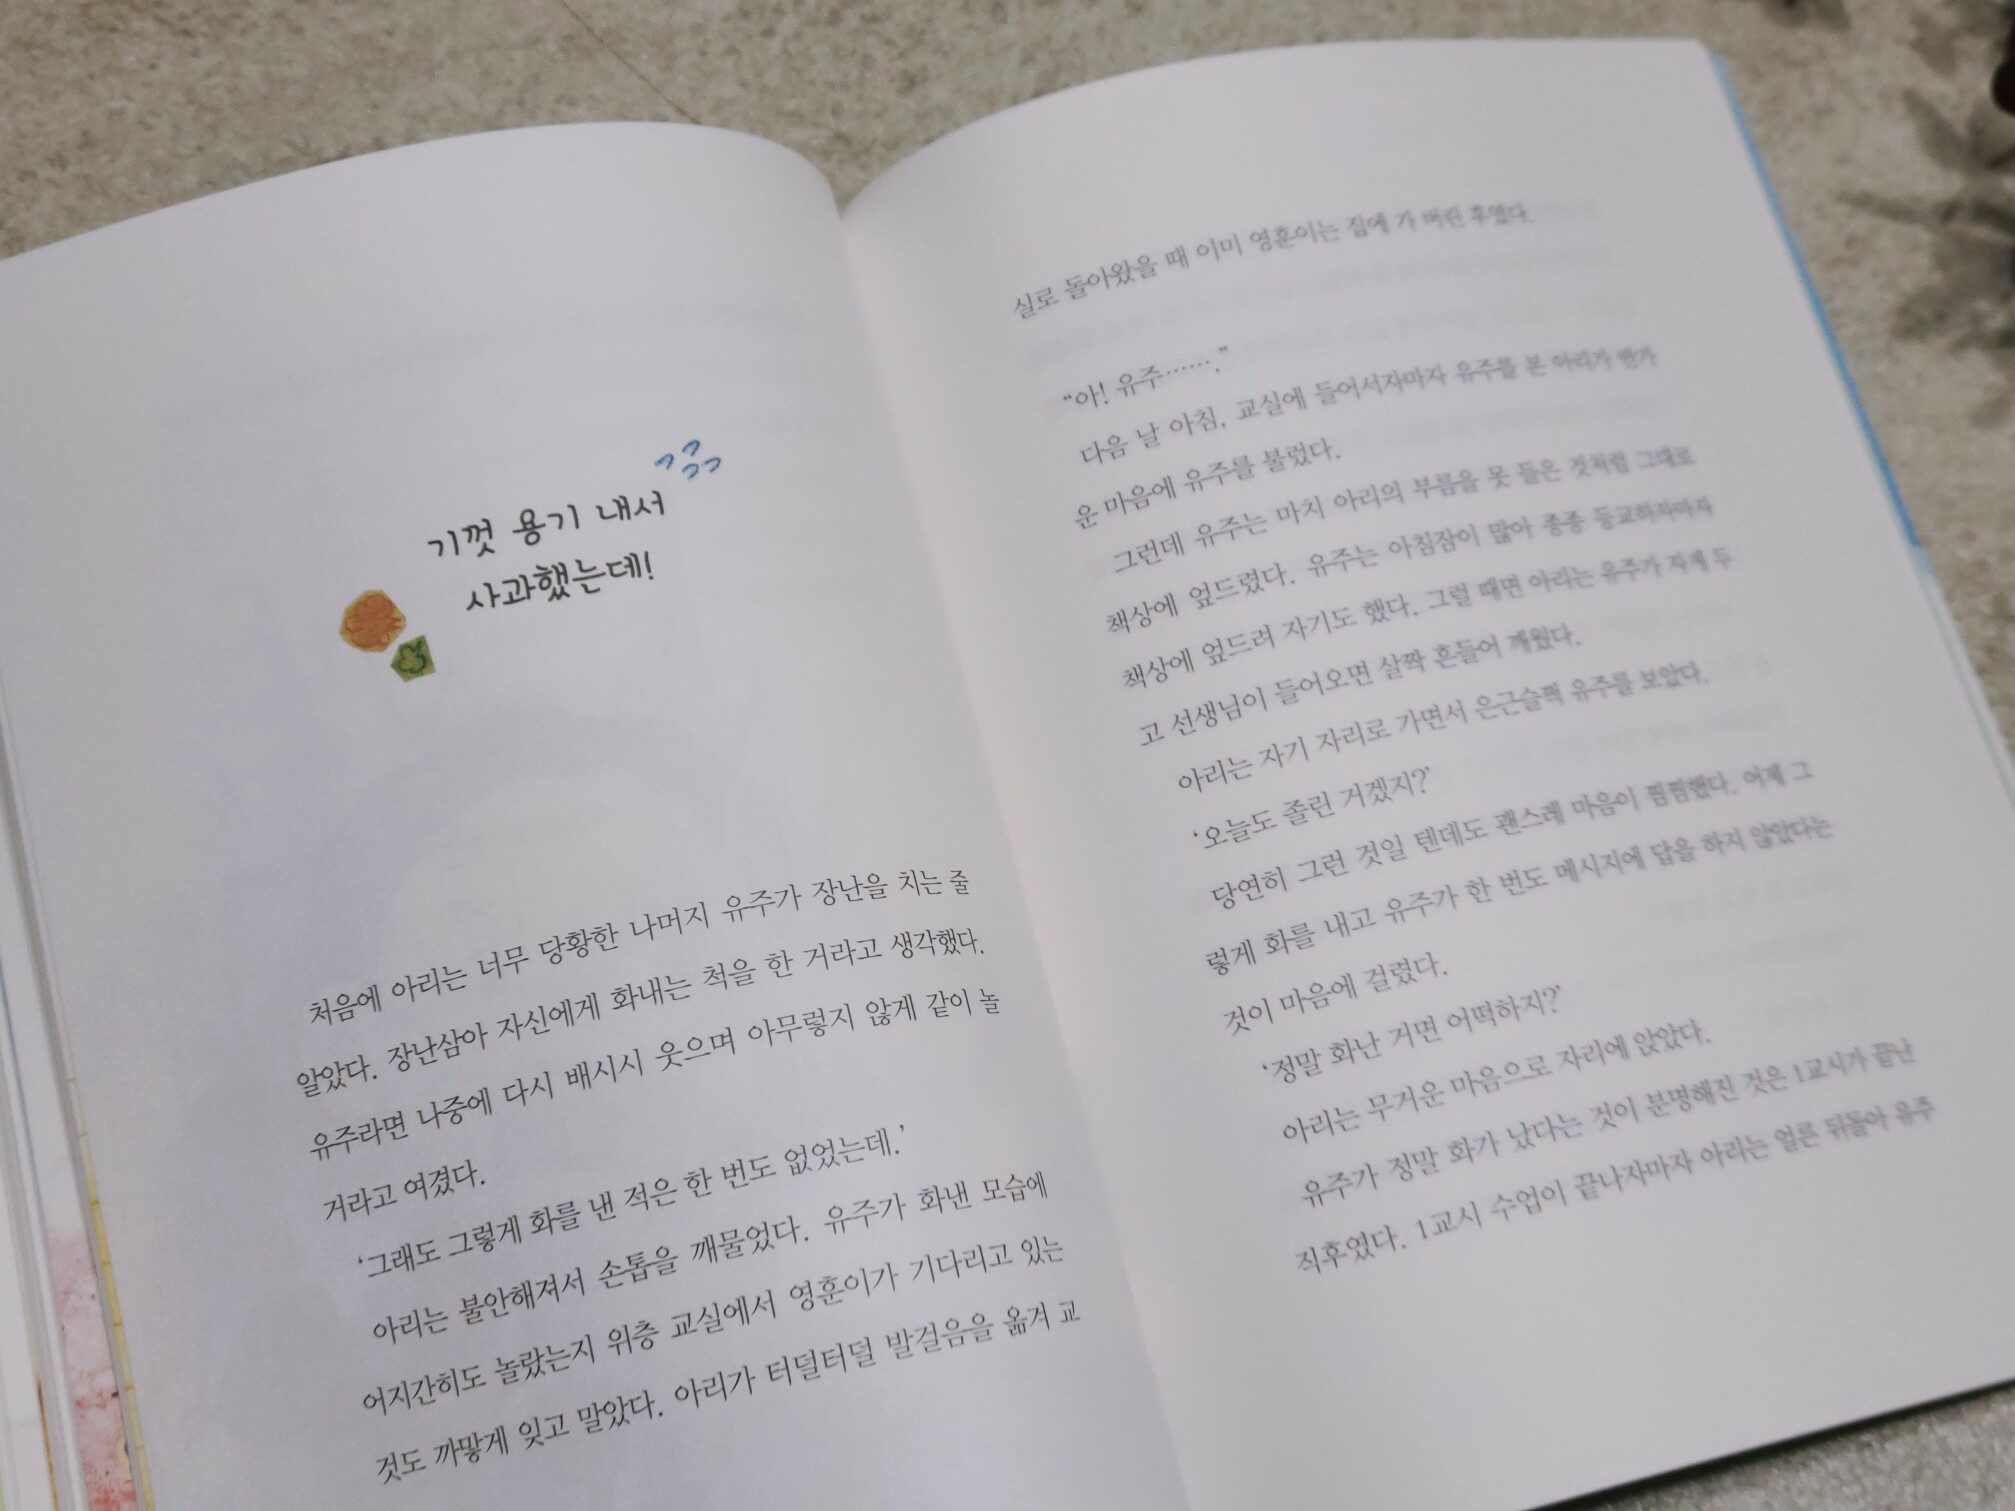 기껏 용기 내서
사과했는데!
처음에 아리는 너무 당황한 나머지 유주가 장난을 치는 줄
알았다. 장난삼아 자신에게 화내는 척을 한 거라고 생각했다.
유주라면 나중에 다시 배시시 웃으며 아무렇지 않게 같이 놀
거라고 여겼다.
‘그래도 그렇게 화를 낸 적은 한 번도 없었는데.’
아리는 불안해져서 손톱을 깨물었다. 유주가 화낸 모습에
어지간히도 놀랐는지 위층 교실에서 영훈이가 기다리고 있는
것도 까맣게 잊고 말았다. 아리가 터덜터덜 발걸음을 옮겨 교
실로 돌아왔을 때 이미 영훈이는 집에 가 버린 후였다.
“아! 유주…….”
다음 날 아침, 교실에 들어서자마자 유주를 본 아리가 반가
운 마음에 유주를 불렀다.
그런데 유주는 마치 아리의 부름을 못 들은 것처럼 그대로
책상에 엎드렸다. 유주는 아침잠이 많아 종종 등교하자마자
책상에 엎드려 자기도 했다. 그럴 때면 아리는 유주가 자게 두
고 선생님이 들어오면 살짝 흔들어 깨웠다.
아리는 자기 자리로 가면서 은근슬쩍 유주를 보았다.
‘오늘도 졸린 거겠지?’
당연히 그런 것일 텐데도 괜스레 마음이 찜찜했다. 어제 그
렇게 화를 내고 유주가 한 번도 메시지에 답을 하지 않았다는
것이 마음에 걸렸다.
‘정말 화난 거면 어떡하지?’
아리는 무거운 마음으로 자리에 앉았다.
유주가 정말 화가 났다는 것이 분명해진 것은 1교시가 끝난
직후였다. 1교시 수업이 끝나자마자 아리는 얼른 뒤돌아 유주